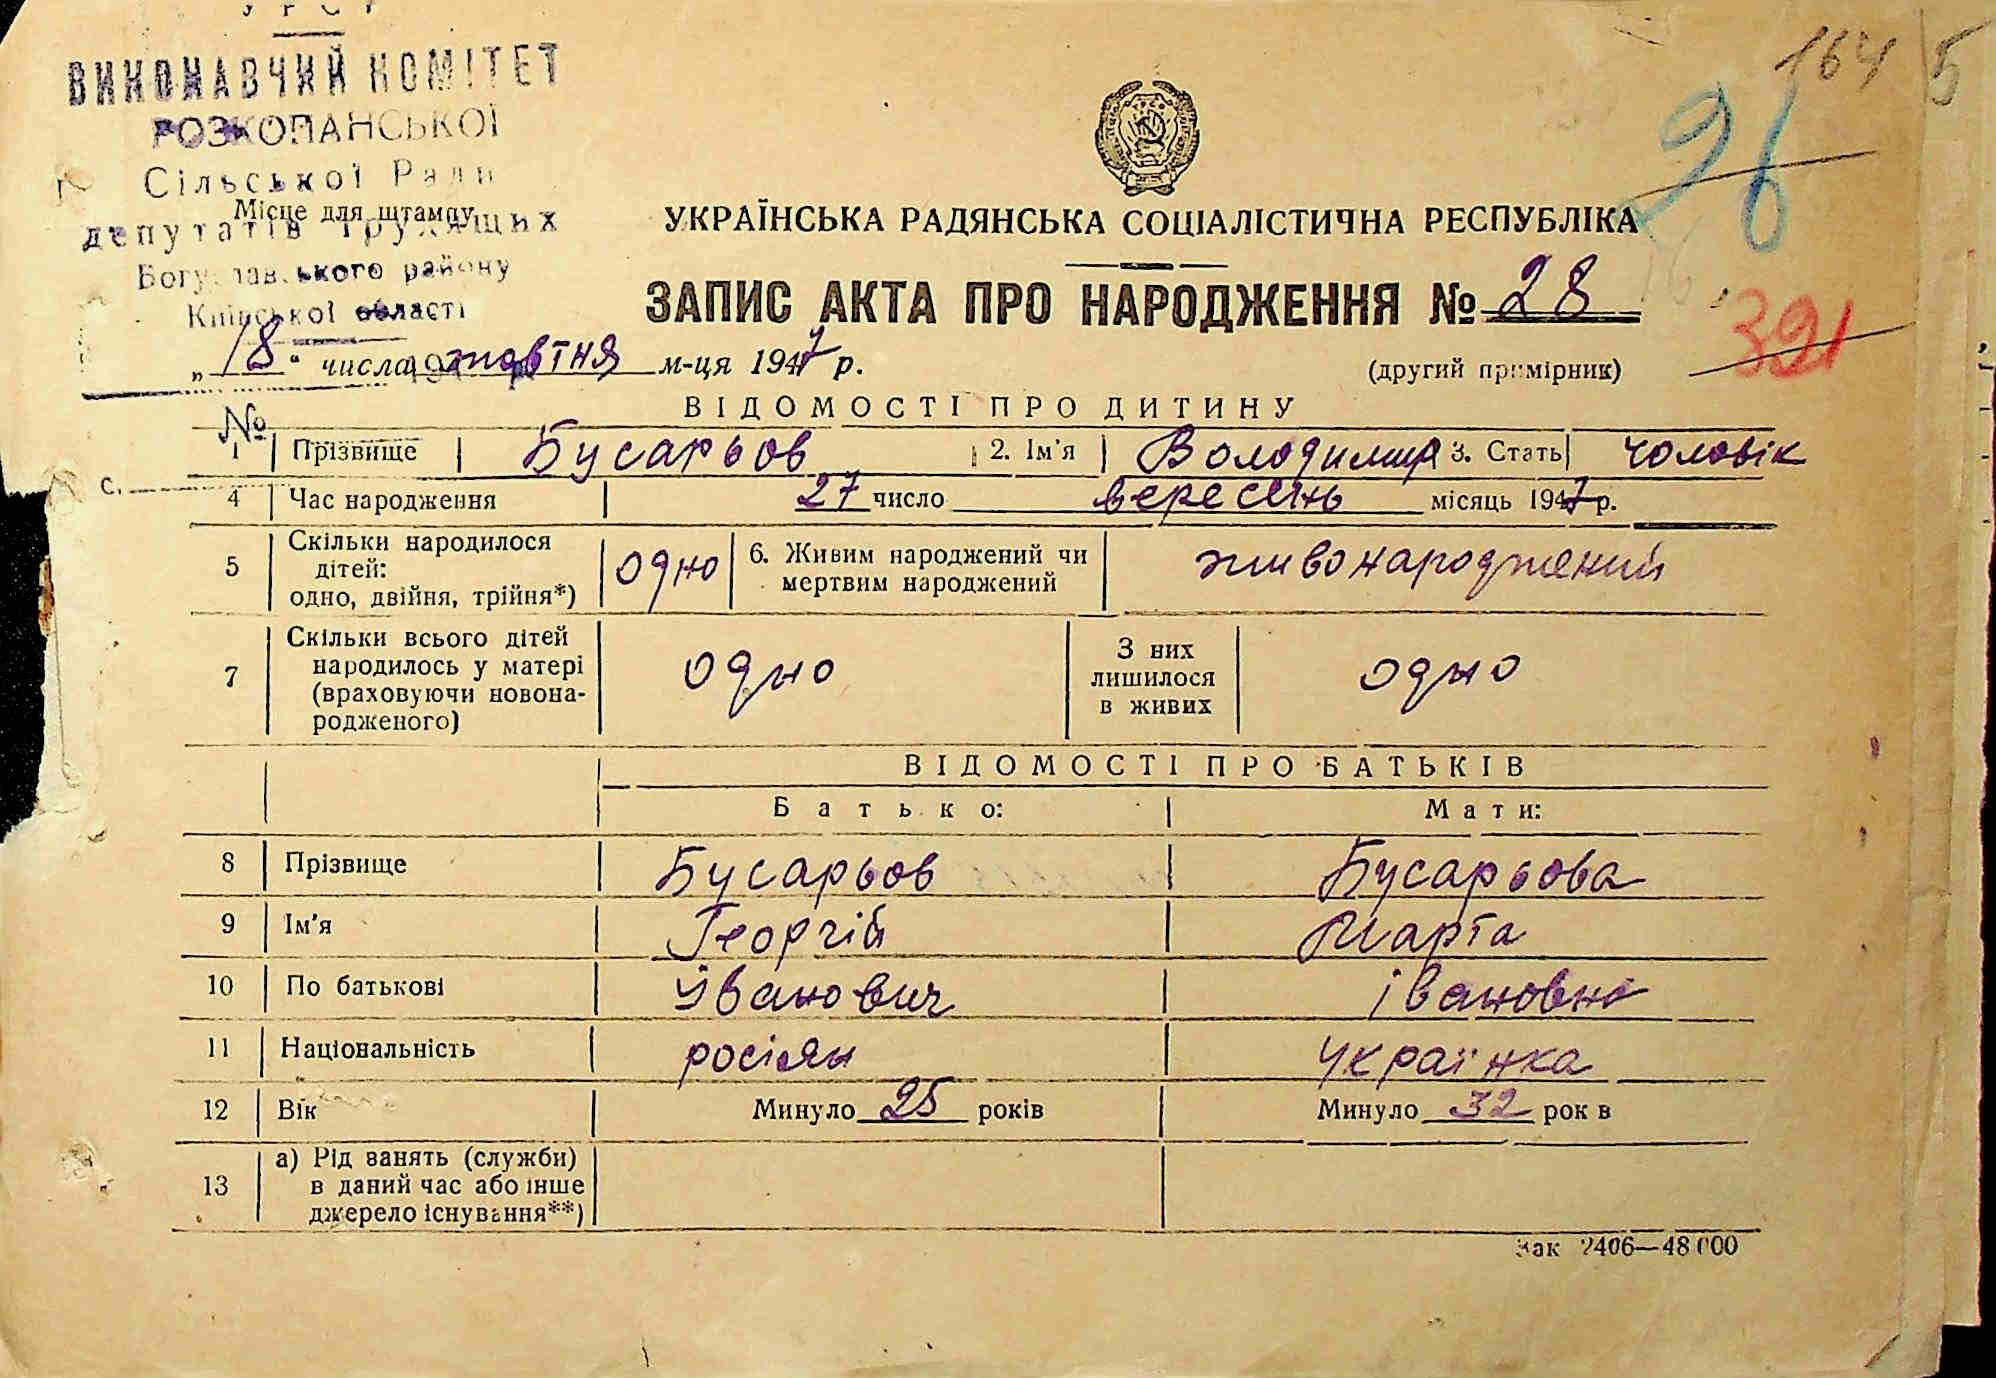 УРСР
ВИКОНАВЧИЙ КОМІТЕТ
РОЗКОПАНСЬКОЇ
Сільської Ради
Місце для штампу
депутатів трудящих
Богуславського району
Київської області
164 5
26
УКРАЇНСЬКА РАДЯНСЬКА СОЦІАЛІСТИЧНА РЕСПУБЛІКА
ЗАПИС АКТА ПРО НАРОДЖЕННЯ № 28
391
„18“ числа жовтня м-ця 1947 р.
(другий примірник)
ВІДОМОСТІ ПРО ДИТИНУ
№
1 Прізвище Бусарьов 2. Ім'я Володимир 3. Стать чоловік
4 Час народження 27 число вересень місяць 1947 р.
5 Скільки народилося дітей: одно, двійня, трійня*) одно 6. Живим народжений чи мертвим народжений живонароджений
7 Скільки всього дітей народилось у матері (враховуючи новона-родженого) одно З них лишилося в живих одно
ВІДОМОСТІ ПРО БАТЬКІВ
Батько: Мати:
8 Прізвище Бусарьов Бусарьова
9 Ім'я Георгій Марта
10 По батькові Іванович Івановна
11 Національність росіян українка
12 Вік Минуло 25 років Минуло 32 рок в
13 а) Рід занять (служби) в даний час або інше джерело існування**)
Зак 2406—48000